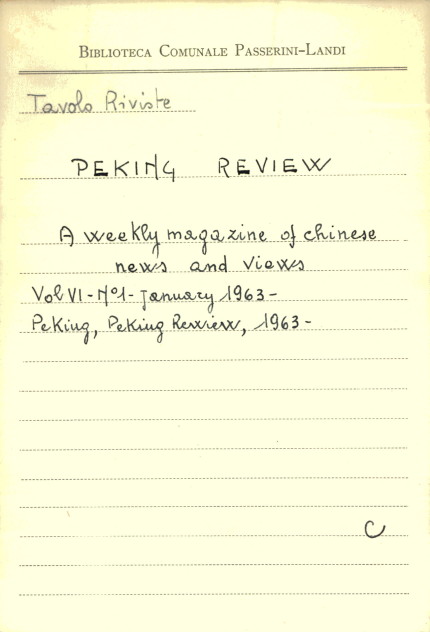 BIBLIOTECA COMUNALE PASSERINI-LANDI
Tavolo Riviste
PEKING REVIEW
A weekly magazine of chinese
news and views
Vol VI - N°1 - January 1963 -
Peking, Peking Rewiew, 1963 -
C